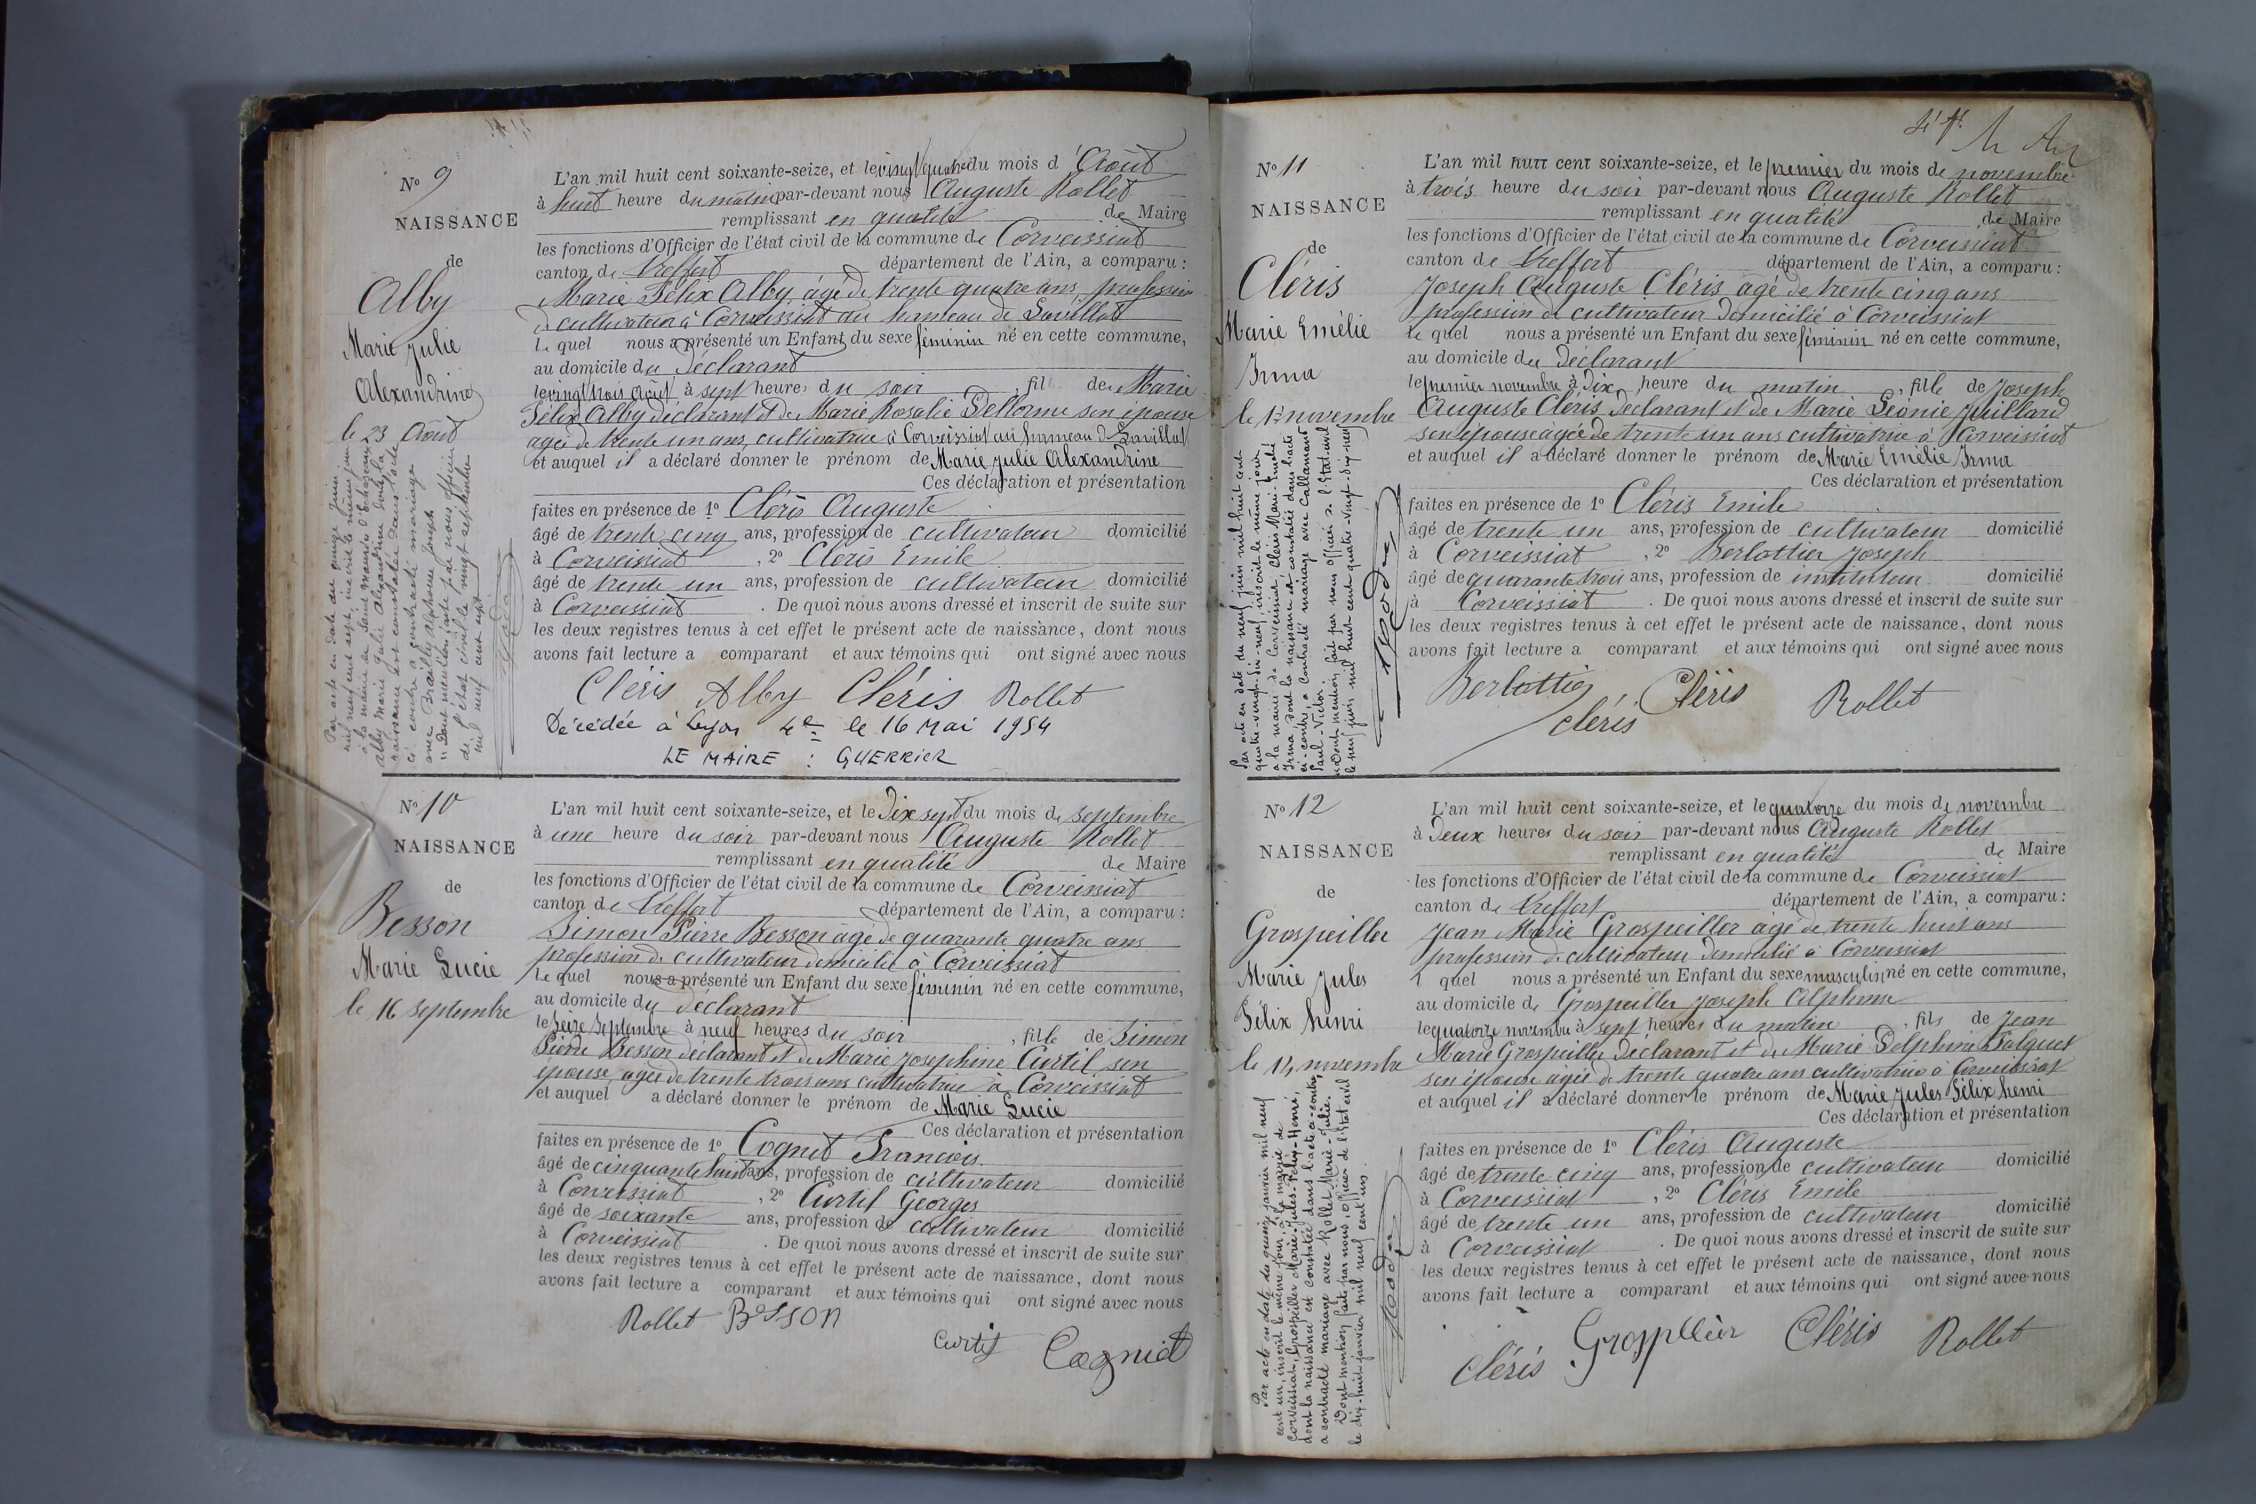 N° 9
NAISSANCE
de
Alby
Marie Julie
Alexandrine
le 23 Août
L'an mil huit cent soixante-seize, et le vingt quatre du mois d'Août
à huit heure du matin par-devant nous Auguste Rollet
remplissant en qualité de Maire
les fonctions d'Officier de l'état civil de la commune de Corveissiat
canton de Treffort département de l'Ain, a comparu :
Marie Félix Alby, âgé de trente quatre ans, profession
de cultivateur à Corveissiat au hameau de Lavillat
Le quel nous a présenté un Enfant du sexe féminin né en cette commune,
au domicile du Déclarant
le vingt trois Août à sept heures du soir, fille de Marie
Félix Alby déclarant et de Marie Rosalie Dellorme son épouse
âgée de trente un ans, cultivatrice à Corveissiat au hameau de Lavillat
et auquel il a déclaré donner le prénom de Marie Julie Alexandrine
Ces déclaration et présentation
faites en présence de 1° Cléris Auguste
âgé de trente cinq ans, profession de cultivateur domicilié
à Corveissiat, 2° Cléris Emile
âgé de trente un ans, profession de cultivateur domicilié
à Corveissiat. De quoi nous avons dressé et inscrit de suite sur
les deux registres tenus à cet effet le présent acte de naissance, dont nous
avons fait lecture a comparant et aux témoins qui ont signé avec nous
Cléris Alby Cléris Rollet
Décédée à Lyon 4e le 16 Mai 1954
LE MAIRE : GUERRIER
Par acte en date du quinze juin
mil neuf cent sept, inscrit le même jour
à la mairie de Saint Maurice d'Echazeaux
Alby Marie Julie Alexandrine dont la
naissance est constatée dans l'acte
ci contre a contracté mariage
avec Brailly Alphonse Joseph
Dont mention faite par nous officier
de l'état civil le vingt septembre
mil neuf cent sept
N° 10
NAISSANCE
de
Besson
Marie Lucie
le 16 septembre
L'an mil huit cent soixante-seize, et le Dix sept du mois de septembre
à une heure du soir par-devant nous Auguste Rollet
remplissant en qualité de Maire
les fonctions d'Officier de l'état civil de la commune de Corveissiat
canton de Treffort département de l'Ain, a comparu :
Simon Pierre Besson âgé de quarante quatre ans
profession de cultivateur domicilié à Corveissiat
Le quel nous a présenté un Enfant du sexe féminin né en cette commune,
au domicile du déclarant
le Seize Septembre à neuf heures du soir, fille de Simon
Pierre Besson déclarant et de Marie Josephine Curtil son
épouse, agée de trente trois ans cultivatrice à Corveissiat
et auquel a déclaré donner le prénom de Marie Lucie
Ces déclaration et présentation
faites en présence de 1° Cognet Francois
âgé de cinquante huit ans, profession de cultivateur domicilié
à Corveissiat, 2° Curtil Georges
âgé de soixante ans, profession de cultivateur domicilié
à Corveissiat. De quoi nous avons dressé et inscrit de suite sur
les deux registres tenus à cet effet le présent acte de naissance, dont nous
avons fait lecture a comparant et aux témoins qui ont signé avec nous
Rollet Besson
Curtil Cogniet
N° 11
NAISSANCE
de
Cléris
Marie Emélie
Irma
le 1er novembre
L'an mil huit cent soixante-seize, et le premier du mois de novembre
à trois heure du soir par-devant nous Auguste Rollet
remplissant en qualité de Maire
les fonctions d'Officier de l'état civil de la commune de Corveissiat
canton de Treffort département de l'Ain, a comparu :
Joseph Auguste Cléris âgé de trente cinq ans
profession de cultivateur domicilié à Corveissiat
Le quel nous a présenté un Enfant du sexe féminin né en cette commune,
au domicile du Déclarant
le premier novembre à Dix heure du matin, fille de Joseph
Auguste Cléris Déclarant et de Marie Léonie Juillard
son épouse agée de trente un ans cultivatrice à Corveissiat
et auquel il a déclaré donner le prénom de Marie Emélie Irma
Ces déclaration et présentation
faites en présence de 1° Cléris Emile
âgé de trente un ans, profession de cultivateur domicilié
à Corveissiat, 2° Berlottier Joseph
âgé de quarante trois ans, profession de instituteur domicilié
à Corveissiat. De quoi nous avons dressé et inscrit de suite sur
les deux registres tenus à cet effet le présent acte de naissance, dont nous
avons fait lecture a comparant et aux témoins qui ont signé avec nous
Berlottier Cléris Rollet
Cléris
Par acte en date du neuf juin mil huit cent
quatre-vingt-dix-neuf inscrit le même jour
à la mairie de Corveissiat, Cléris Marie-Emélie
Irma dont la naissance est constatée dans l'acte
ci-contre, a contracté mariage avec Callamand
Paul-Victor.
Dont mention faite par nous officier de l'état civil
le neuf juin mil huit cent quatre-vingt-dix-neuf
N° 12
NAISSANCE
de
Grospeiller
Marie Jules
Félix henri
le 14 novembre
L'an mil huit cent soixante-seize, et le quatorze du mois de novembre
à Deux heures du soir par-devant nous Auguste Rollet
remplissant en qualité de Maire
les fonctions d'Officier de l'état civil de la commune de Corveissiat
canton de Treffort département de l'Ain, a comparu :
Jean Marie Grospeiller âgé de trente huit ans
profession de cultivateur domicilié à Corveissiat
l quel nous a présenté un Enfant du sexe masculin né en cette commune,
au domicile de Grospeiller Joseph Alphonse
le quatorze novembre à sept heures du matin, fils de Jean
Marie Grospeiller Déclarant et de Marie Delphine
son épouse âgée de trente quatre ans cultivatrice à Corveissiat
et auquel il a déclaré donner le prénom de Marie Jules Félix henri
Ces déclaration et présentation
faites en présence de 1° Cléris Auguste
âgé de trente cinq ans, profession de cultivateur domicilié
à Corveissiat, 2° Cléris Emile
âgé de trente un ans, profession de cultivateur domicilié
à Corveissiat. De quoi nous avons dressé et inscrit de suite sur
les deux registres tenus à cet effet le présent acte de naissance, dont nous
avons fait lecture a comparant et aux témoins qui ont signé avec nous
Cléris Grospellier Cléris Rollet
Par acte en date du quinze janvier mil neuf
cent un, inscrit le même jour à la mairie de
Corveissiat, Grospeiller Marie-Jules-Félix-Henri,
dont la naissance est constatée dans l'acte ci-contre,
a contracté mariage avec Rollet Marie-Julie.
Dont mention faite par nous, officier de l'état civil
le dix-huit janvier mil neuf cent un.